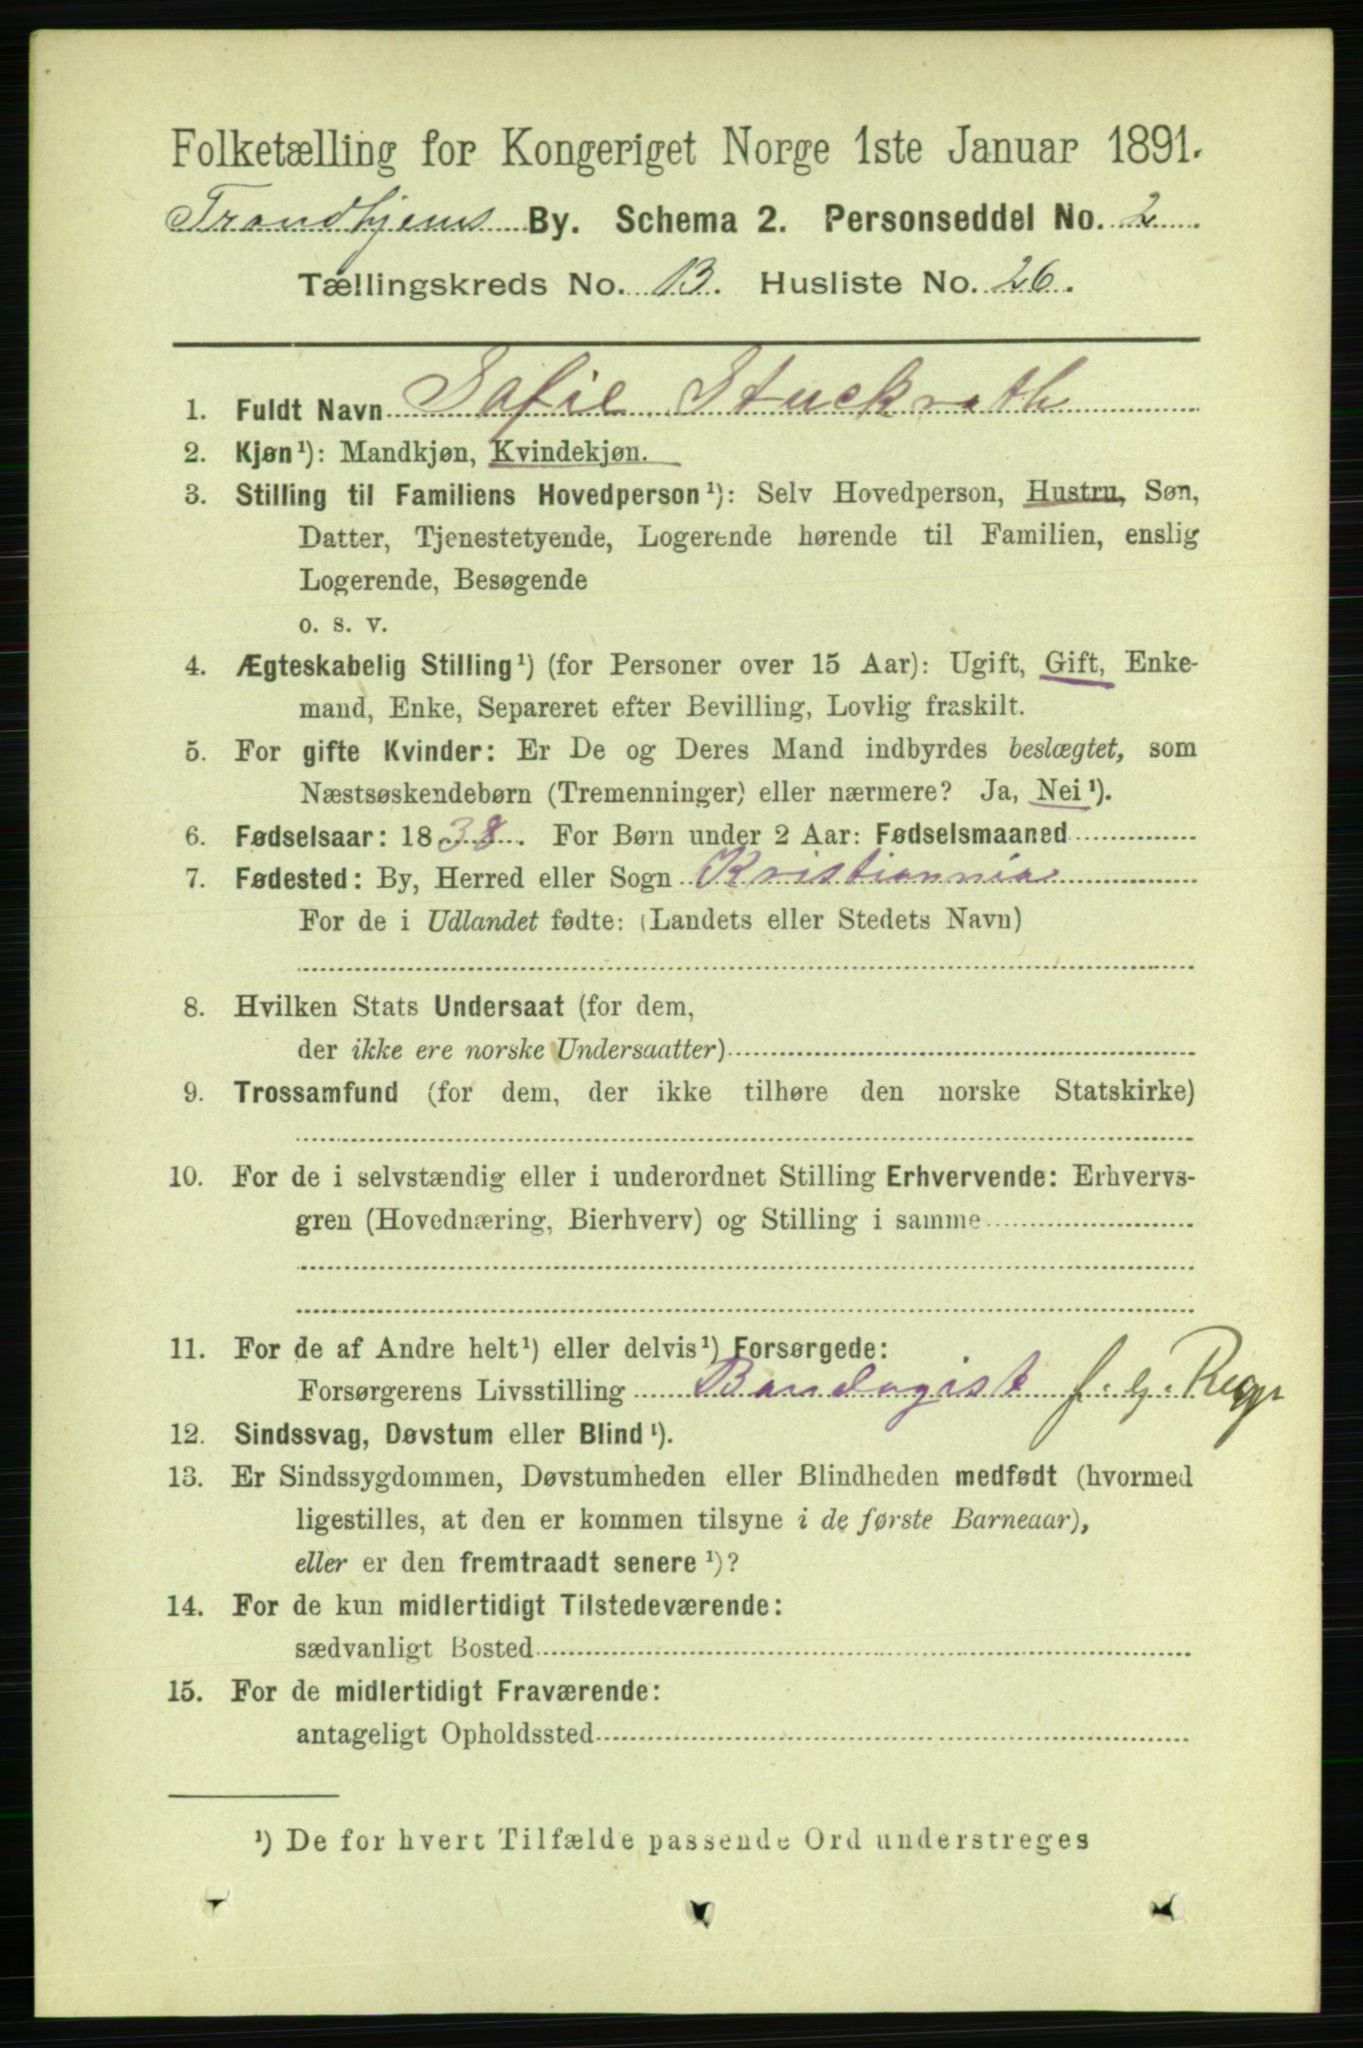 Folketælling for Kongeriget Norge 1ste Januar 1891.
Trondhjems By. Schema 2. Personseddel No. 2
Tællingskreds No. 13. Husliste No. 26.
1. Fuldt Navn Sofie Stuckrath
2. Kjøn¹): Mandkjøn, Kvindekjøn.
3. Stilling til Familiens Hovedperson¹): Selv Hovedperson, Hustru, Søn,
Datter, Tjenestetyende, Logerende hørende til Familien, enslig
Logerende, Besøgende
o. s. v.
4. Ægteskabelig Stilling¹) (for Personer over 15 Aar): Ugift, Gift, Enke-
mand, Enke, Separeret efter Bevilling, Lovlig fraskilt.
5. For gifte Kvinder: Er De og Deres Mand indbyrdes beslægtet, som
Næstsøskendebørn (Tremenninger) eller nærmere? Ja, Nei¹).
6. Fødselsaar: 1838. For Børn under 2 Aar: Fødselsmaaned
7. Fødested: By, Herred eller Sogn Kristiannia
For de i Udlandet fødte: (Landets eller Stedets Navn)
8. Hvilken Stats Undersaat (for dem,
der ikke ere norske Undersaatter)
9. Trossamfund (for dem, der ikke tilhøre den norske Statskirke)
10. For de i selvstændig eller i underordnet Stilling Erhvervende: Erhvervs-
gren (Hovednæring, Bierhverv) og Stilling i samme
11. For de af Andre helt¹) eller delvis¹) Forsørgede:
Forsørgerens Livsstilling Bandagist f. eg. Regn
12. Sindssvag, Døvstum eller Blind¹).
13. Er Sindssygdommen, Døvstumheden eller Blindheden medfødt (hvormed
ligestilles, at den er kommen tilsyne i de første Barneaar),
eller er den fremtraadt senere¹)?
14. For de kun midlertidigt Tilstedeværende:
sædvanligt Bosted
15. For de midlertidigt Fraværende:
antageligt Opholdssted
¹) De for hvert Tilfælde passende Ord understreges